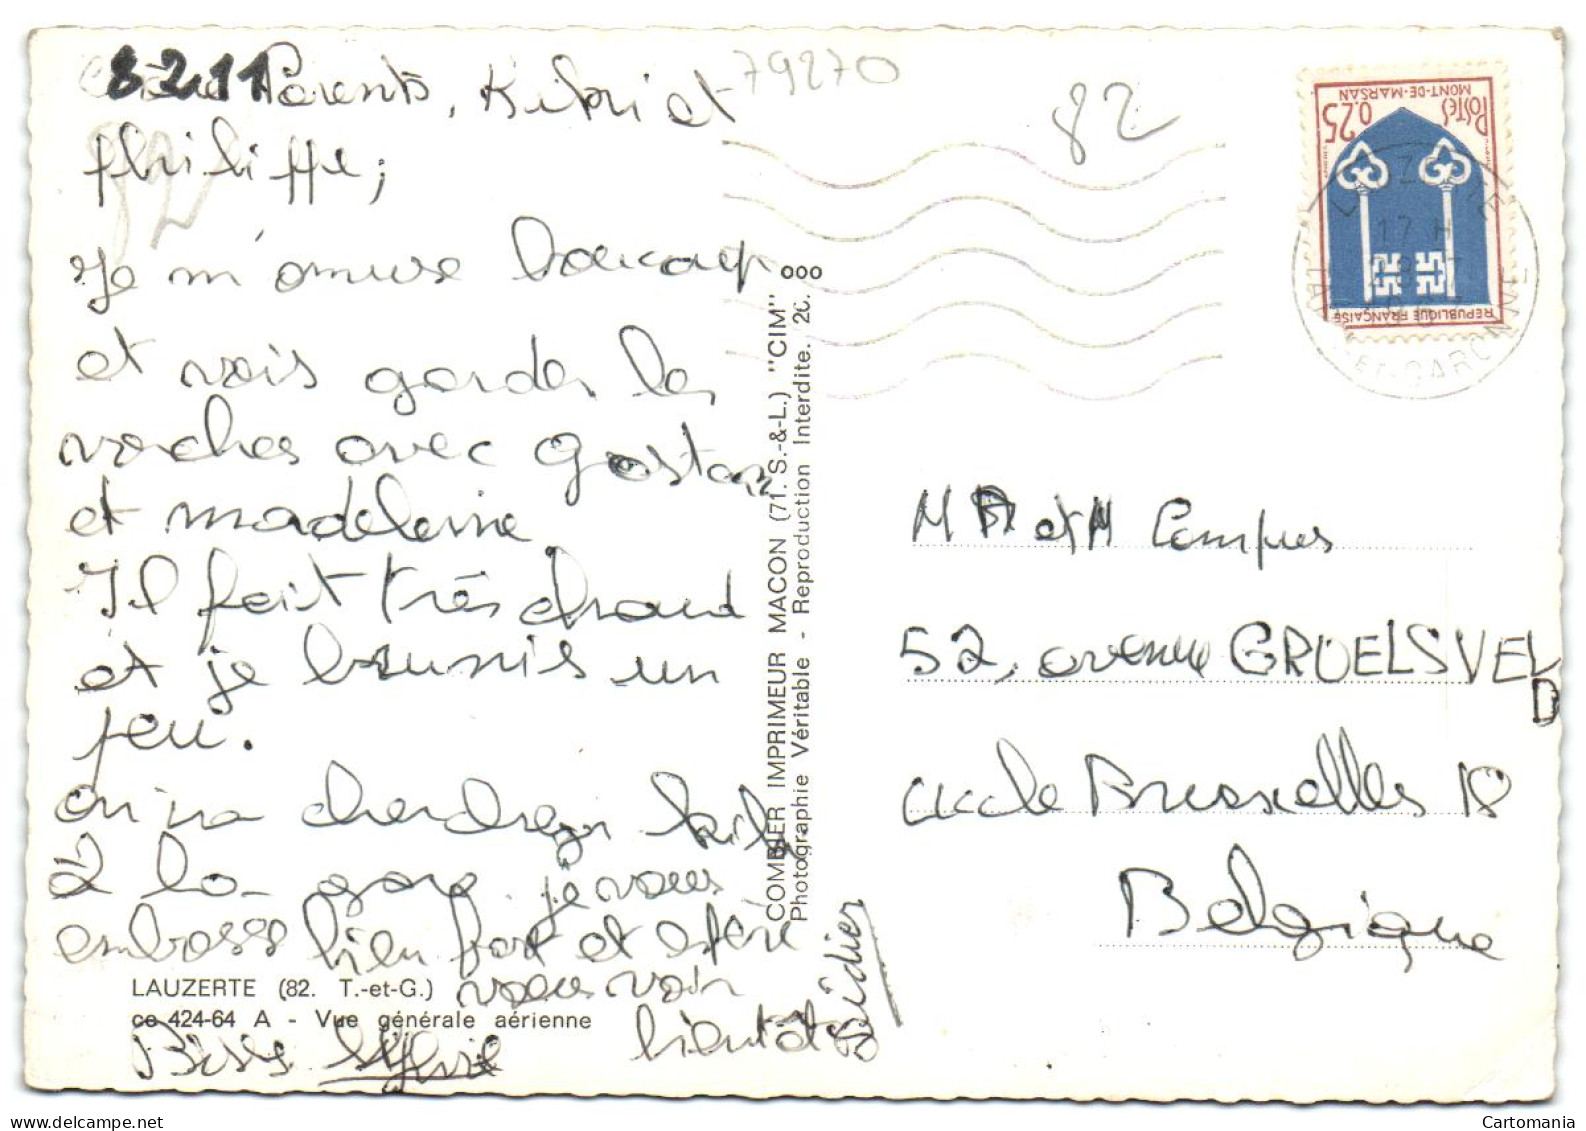 8211
Parents, Kiki et
Philippe,
Je m'amuse beaucoup
et vais garder les
vaches avec Gaston
et madeleine
Il fait très chaud
et je brunis un
peu.
on va chercher Kiki
à la gare. je vous
embrasse bien fort et espère
vous voir
bientôt
Didier
Bises Sylvie
LAUZERTE (82. T.-et-G.)
ce 424-64 A - Vue générale aérienne
COMBIER IMPRIMEUR MACON (71. S.-&-L.) "CIM"
Photographie Véritable - Reproduction Interdite. 2c.
79270
82
82
POSTES
MONT-DE-MARSAN
0,25
REPUBLIQUE FRANÇAISE
17 H
TARN-ET-GARONNE
M et M Compus
52, avenue GROELSVEL
D
uccle Bruxelles 18
Belgique
Cartomania